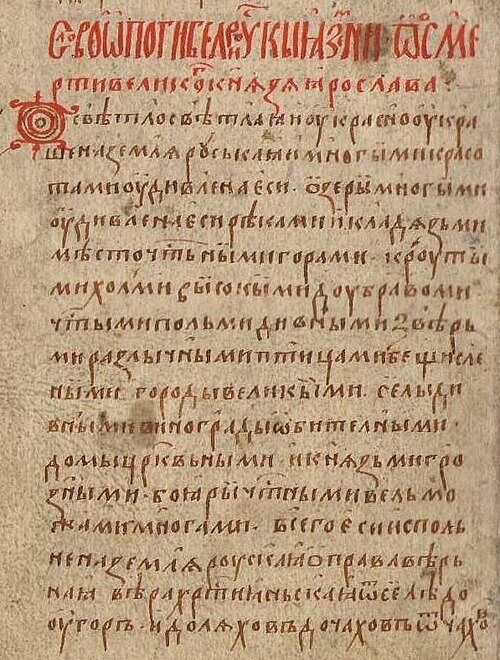 Слово ѿ погибели Рꙋскыꙗ земли и ѡ сме
рти великого кнѧзѧ Ꙗрослава:
О свѣтло свѣтлаꙗ и оукрасно оукра
шена землѧ Роуськаꙗ и многыми красо
тами оудивлена еси. ѡзеры многыми
оудивлена еси рѣками и кладѧзьми
мѣсточтьными горами. кроуты
ми холми высокыми доубравоми
чтыми польми дивными звѣрь
ми разлычными птицами бещисле
ными. городы великыми. селы ди
вными винограды ѡбителными.
домы црквьными. и кнѧзьми гро
зными. боꙗры чтными вельмо
жами многами. всего еси исполь
нена землѧ Роускаꙗ ѡ правовѣрь
наꙗ вѣра хртиꙗньскаꙗ ѿселѣ до
оугоръ. и до лѧховъ до чаховъ ѿ чахо